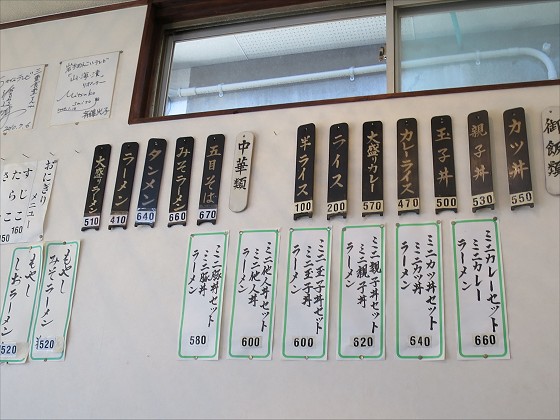 御飯類
カツ丼
550
親子丼
530
玉子丼
500
カレーライス
470
大盛りカレー
570
ライス
200
半ライス
100
中華類
五目そば
670
みそラーメン
660
タンメン
640
ラーメン
410
大盛ラーメン
510
ミニカレーセット
ミニカレー
ラーメン
660
ミニカツ丼セット
ミニカツ丼
ラーメン
640
ミニ親子丼セット
ミニ親子丼
ラーメン
620
ミニ玉子丼セット
ミニ玉子丼
ラーメン
600
ミニ他人丼セット
ミニ他人丼
ラーメン
600
ミニ豚丼セット
ミニ豚丼
ラーメン
580
おにぎり
メニュー
すじこ
160
たらこ
さけ
150
もやし
みそラーメン
520
もやし
しおラーメン
520